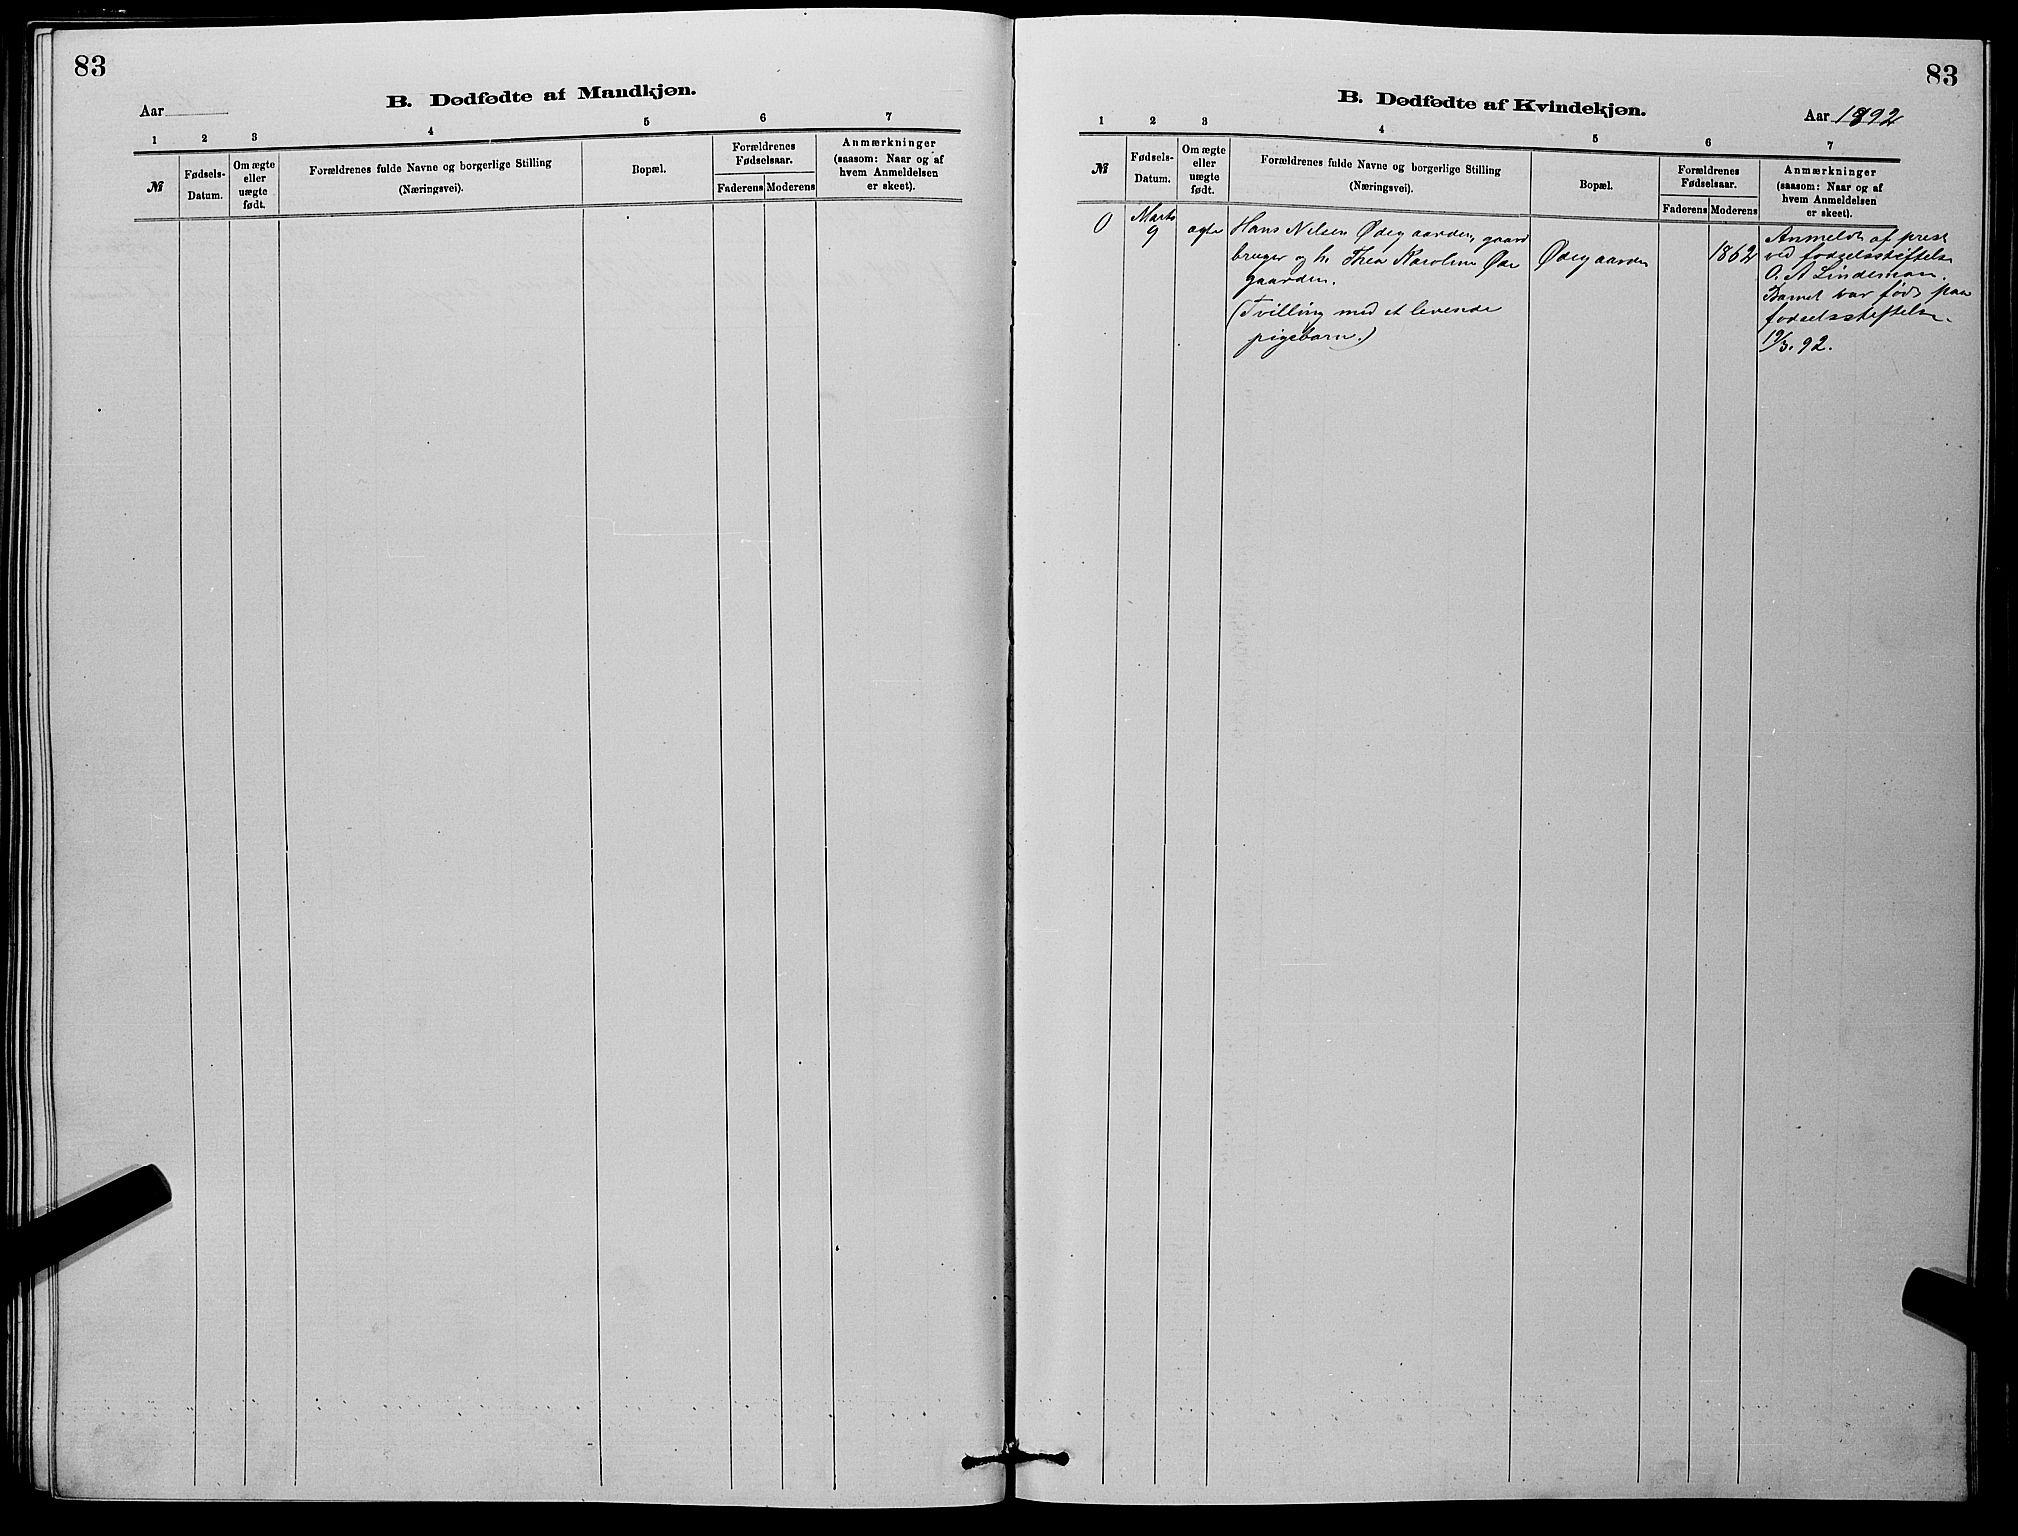 83
B. Dødfødte af Mandkjøn.
Aar
1 2 3 4 5 6 7
№ Fødsels-Datum. Om ægte eller uægte født. Forældrenes fulde Navne og borgerlige Stilling (Næringsvei). Bopæl. Forældrenes Fødselsaar. Faderens Moderens Anmærkninger (saasom: Naar og af hvem Anmeldelsen er skeet).
83
B. Dødfødte af Kvindekjøn.
Aar 1892
1 2 3 4 5 6 7
№ Fødsels-Datum. Om ægte eller uægte født. Forældrenes fulde Navne og borgerlige Stilling (Næringsvei). Bopæl. Forældrenes Fødselsaar. Faderens Moderens Anmærkninger (saasom: Naar og af hvem Anmeldelsen er skeet).
0
Marts
9
ægte
Hans Nilsen Ødegaarden, gaard
bruger og h. Thea Karoline Øde
gaarden.
(Tvilling med et levende
pigebarn.)
Ødegaarden
1862
Anmeldt af prest
ved fødselsstiftelse
A. Lindeman.
Barnet var født paa
fødselsstiftelse.
19/3. 92.